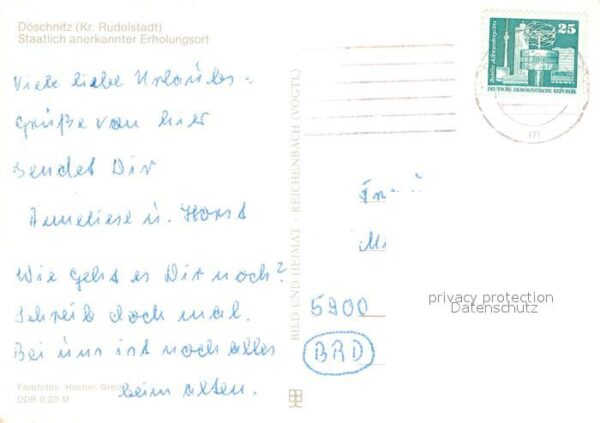 Döschnitz (Kr. Rudolstadt)
Staatlich anerkannter Erholungsort
Viele liebe Urlaubs-
grüße von hier
sendet Dir
Anneliese u. Horst
Wie geht es Dir noch?
Schreib doch mal.
Bei uns ist noch alles
beim alten.
Farbfotos: Hochel, Greiz
DDR 0,20 M
BILD UND HEIMAT · REICHENBACH (VOGTL.)
Berlin-Alexanderplatz
25
DEUTSCHE DEMOKRATISCHE REPUBLIK
5900
BRD
privacy protection
Datenschutz